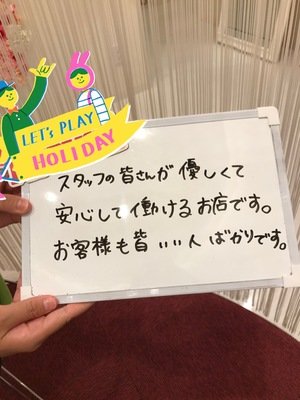 LET'S PLAY
HOLIDAY
スタッフの皆さんが優しくて
安心して働けるお店です。
お客様も皆いい人ばかりです。